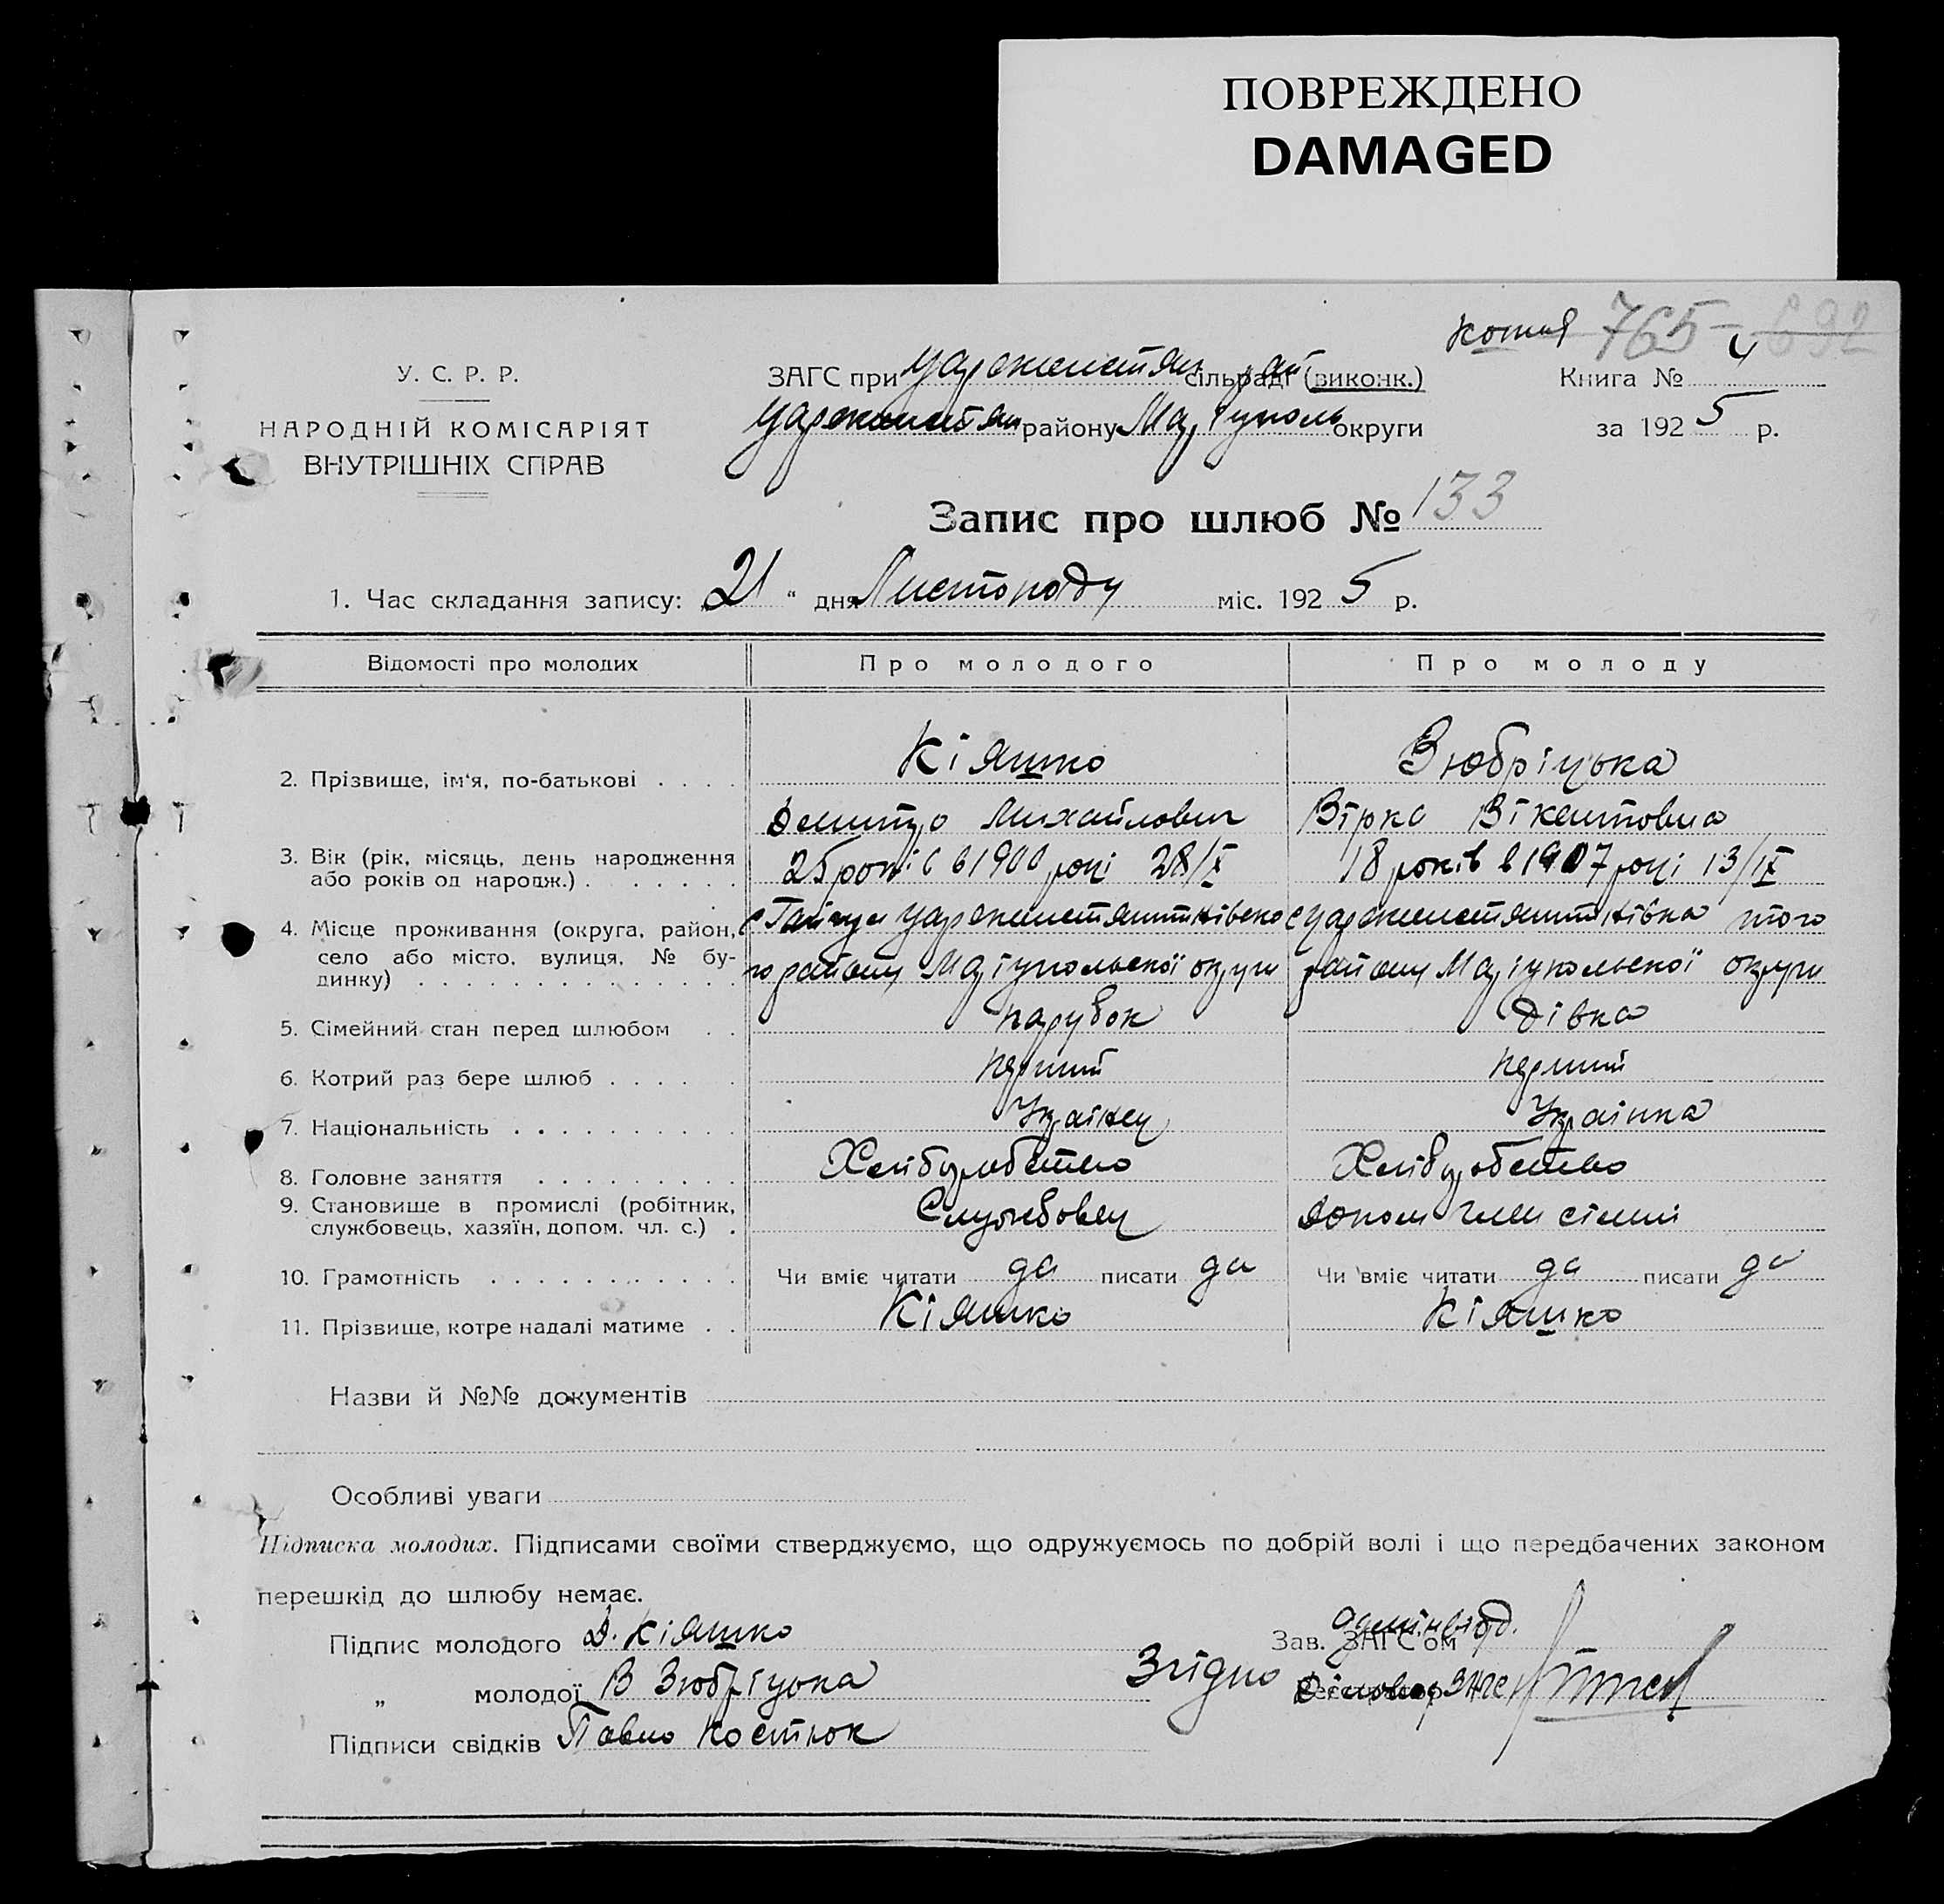 ПОВРЕЖДЕНО
DAMAGED
копия 765 692
У. С. Р. Р.
НАРОДНІЙ КОМІСАРІЯТ
ВНУТРІШНІХ СПРАВ
ЗАГС при Царекостян рай сільраді (виконк.)
Царекостян районy Маріуполь округи
Книга № 4
за 1925 р.
Запис про шлюб № 133
1. Час складання запису: 21 " дня Листопаду міс. 1925 р.
Відомості про молодих Про молодого Про молоду
2. Прізвище, ім'я, по-батькові . . . . Кіяшко Зюбріцька
Дмитро Михайлович Вірка Вікентовна
3. Вік (рік, місяць, день народження
або років од народж.) . . . . . . . 25 років в 1900 році 28/X 18 років в 1907 році 13/IX
4. Місце проживання (округа, район,
село або місто, вулиця, № бу-
динку) . . . . . . . . . . . . . .
с Гайчул Царекостянтинівско с Царекостянтинівка того
го району Маріупольскої округи району Маріупольскої округи
5. Сімейний стан перед шлюбом . . парубок дівка
6. Котрий раз бере шлюб . . . . . перший перший
7. Національність . . . . . . . . . . Українец Українка
8. Головне заняття . . . . . . . . . Хлібуробство Хлібуробство
9. Становище в промислі (робітник,
службовець, хазяїн, допом. чл. с.) . Службовец допом член сімии
10. Грамотність . . . . . . . . . . . Чи вміє читати да писати да Чи вміє читати да писати да
11. Прізвище, котре надалі матиме . . Кіяшко Кіяшко
Назви й №№ документів
Особливі уваги
Підписка молодих. Підписами своїми стверджуємо, що одружуємось по добрій волі і що передбачених законом
перешкід до шлюбу немає.
Підпис молодого Д. Кіяшко
Зав. ЗАГС'ом Адмінвідд.
„ молодої В Зюбріцька
Згідно Діловод ЗАГС
Підписи свідків Павло Костюк